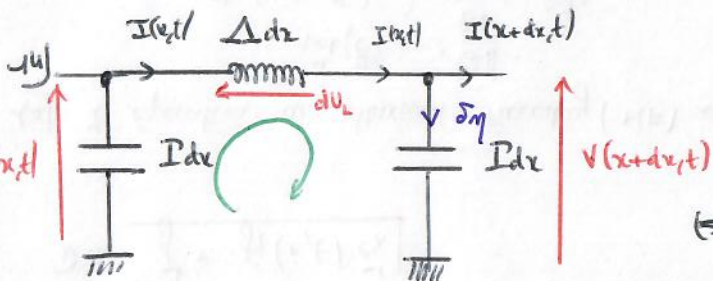 I(x,t) Λdx I(x,t) I(x+dx,t)
dU_L
δη
x,t) Γdx Γdx V(x+dx,t)
(=